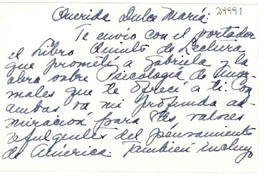 Querida Dulce María: 29991
Te envío con el portador
el Libro Quinto de Lectura
que prometí a Gabriela y la
obra sobre Psicología de Anor-
males que te ofrecí a ti. Con
ambas va mi profunda ad-
miración para dos valores
refulgentes del pensamiento
de América. También incluyo